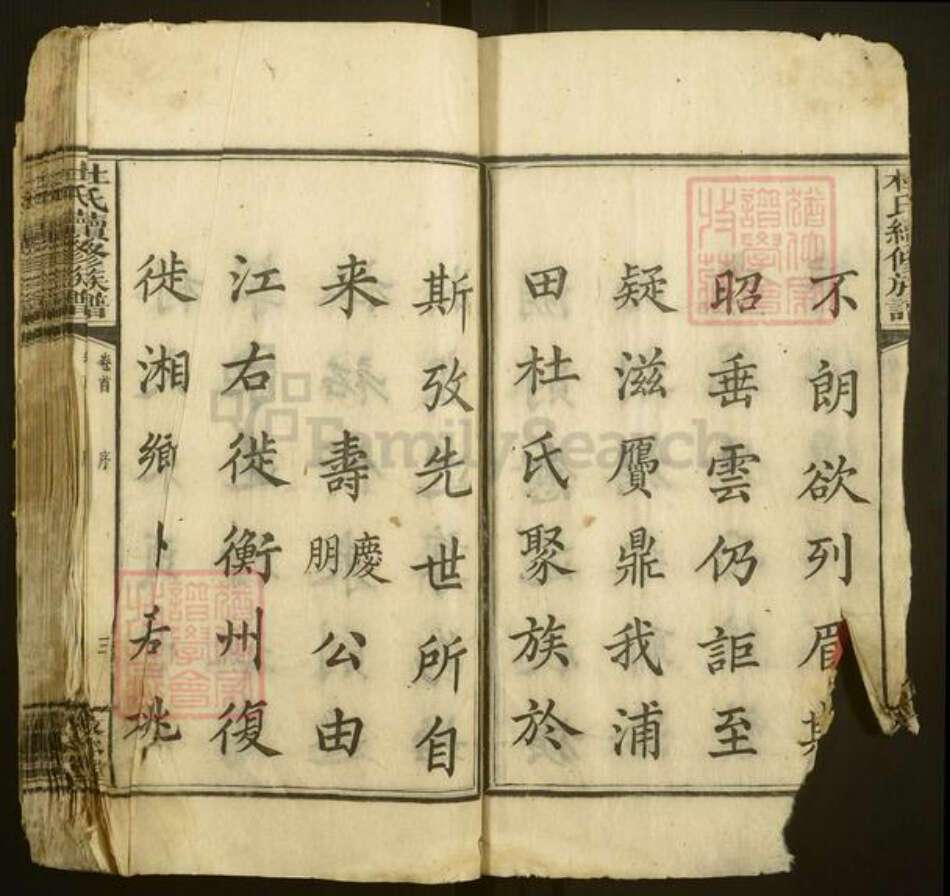 杜氏續修族譜
不朗欲列眉其
昭垂雲仍詎至
疑滋贋鼎我浦
田杜氏聚族於
斯攷先世所自
来壽慶朋公由
江右徙衡州復
徙湘鄉卜若
杜氏續修族譜
卷首
序
三
FamilySearch